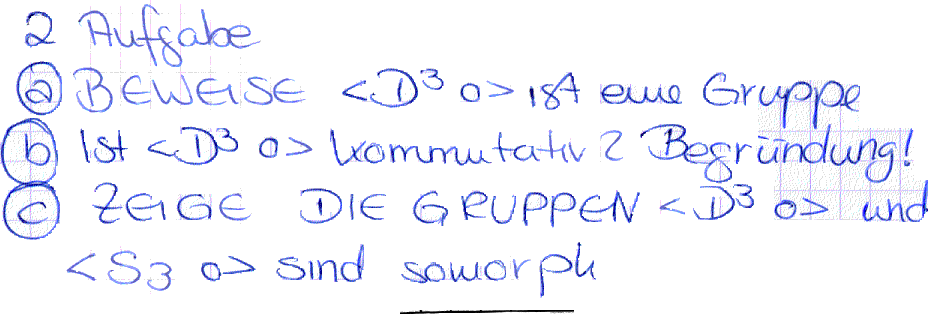 2 Aufgabe
a) BEWEISE <D³ o> ist eine Gruppe
b) Ist <D³ o> kommutativ? Begründung!
c) ZEIGE DIE GRUPPEN <D³ o> und
<S3 o> sind isomorph